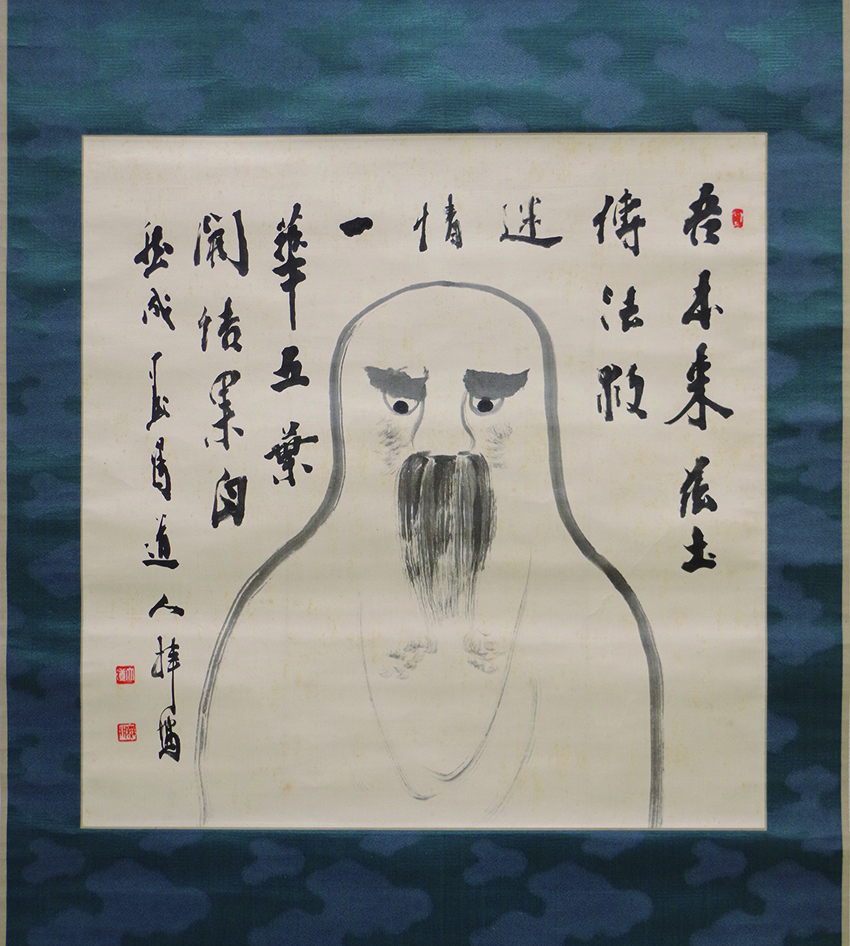 吾本来茲土
傳法救
迷
情
一
華五葉
開結果自
然成 道人拝